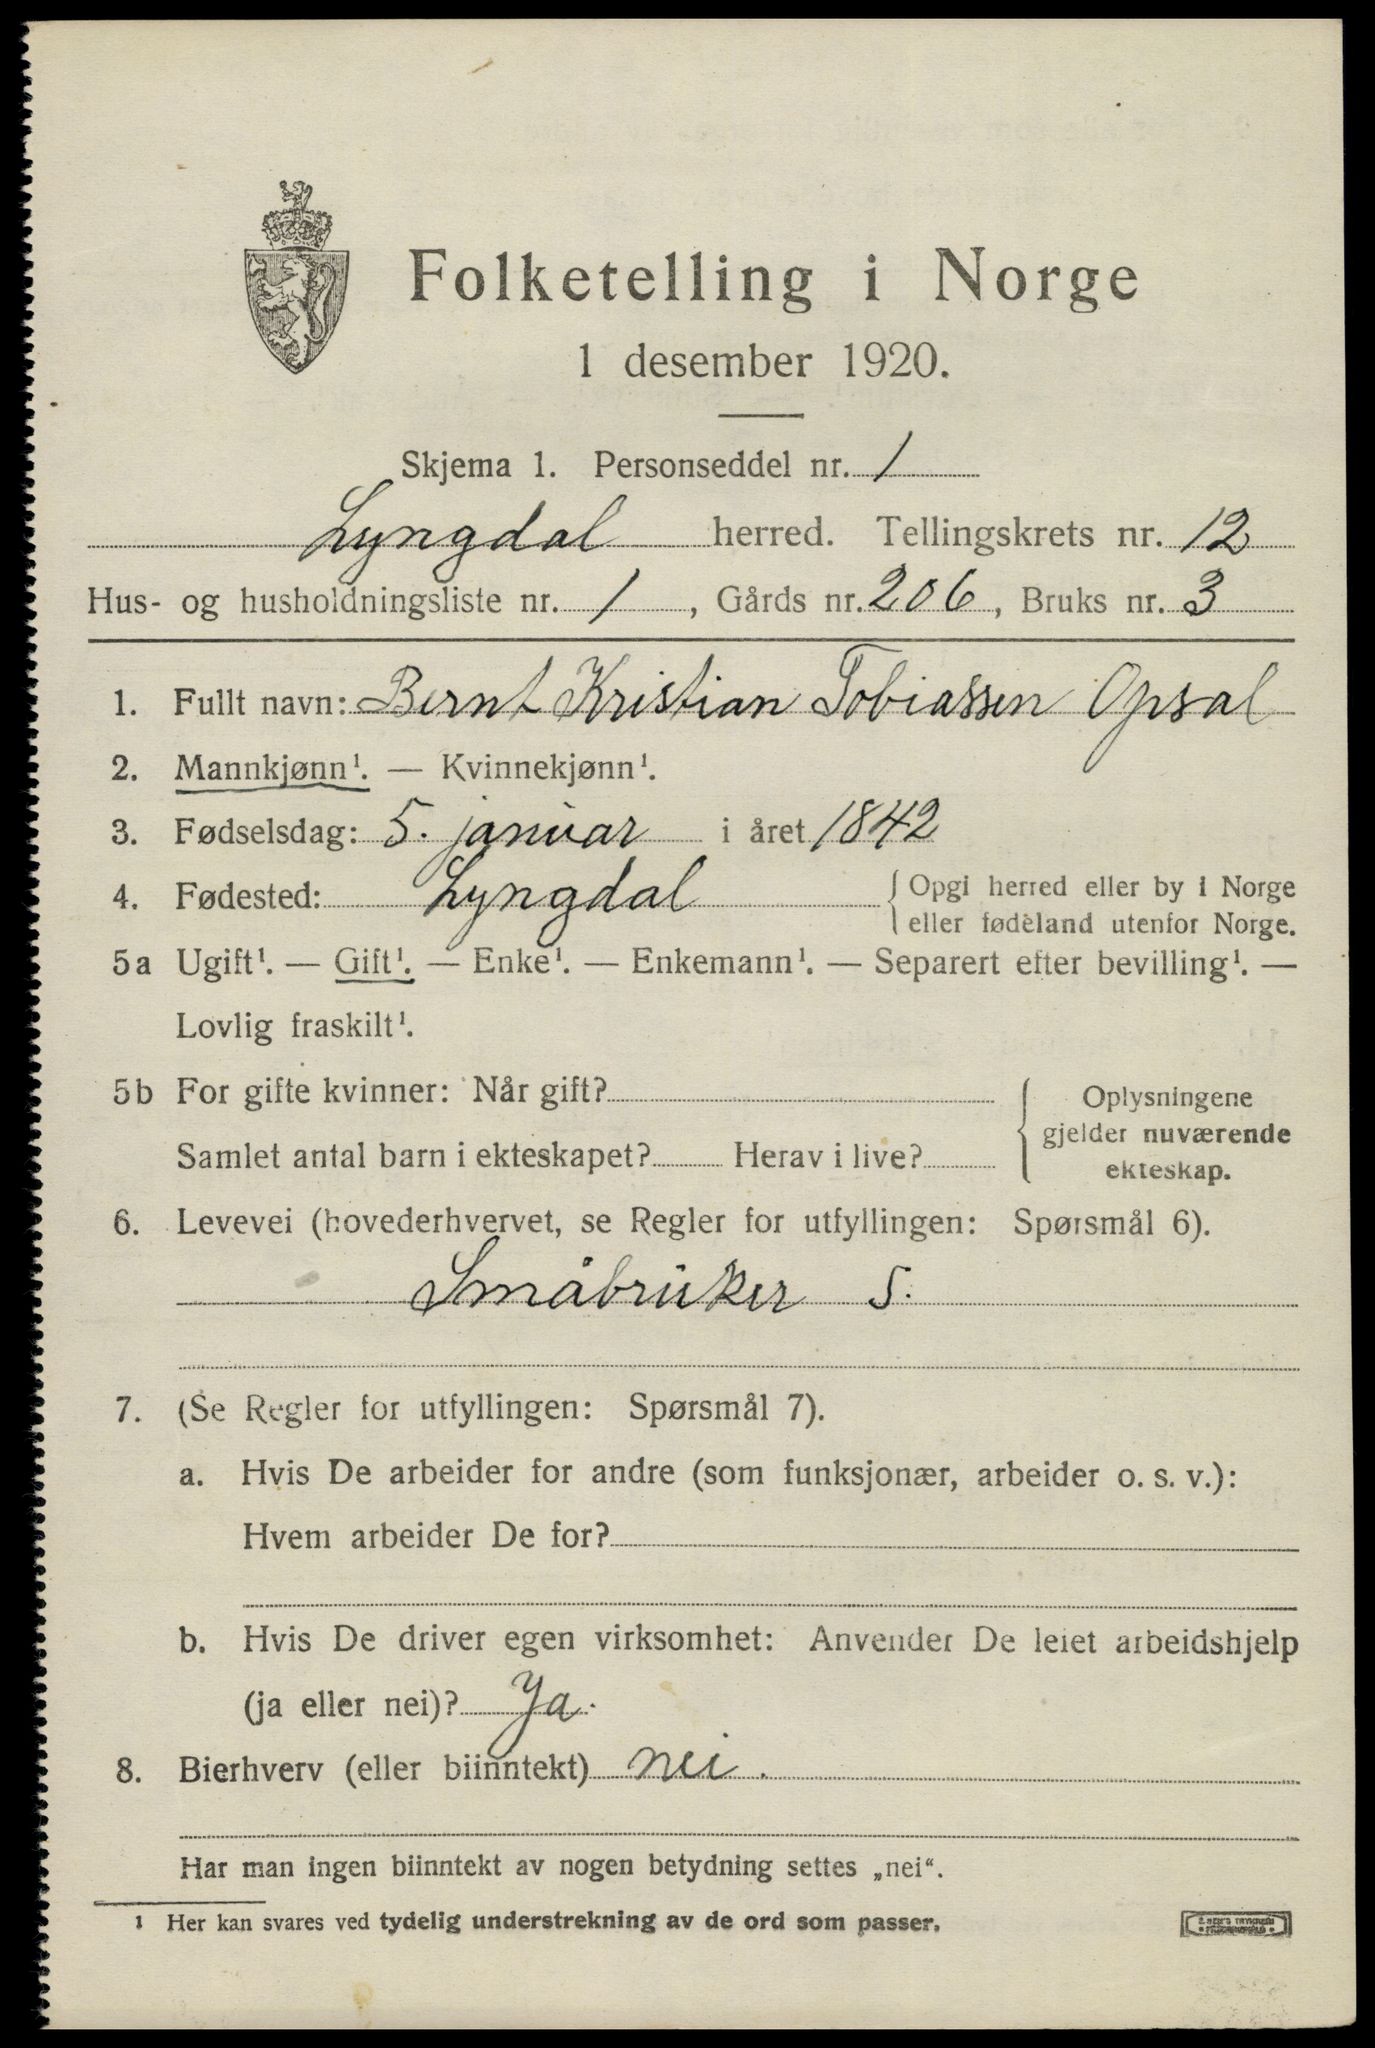 Folketelling i Norge
1 desember 1920.
Skjema 1. Personseddel nr. 1
Lyngdal herred. Tellingskrets nr. 12
Hus- og husholdningsliste nr. 1, Gårds nr. 206, Bruks nr. 3
1. Fullt navn: Bernt Kristian Tobiassen Opsal
2. Mannkjønn¹. — Kvinnekjønn¹.
3. Fødselsdag: 5. januar i året 1842
4. Fødested: Lyngdal {Opgi herred eller by i Norge
eller fødeland utenfor Norge.
5a Ugift¹. — Gift¹. — Enke¹. — Enkemann¹. — Separert efter bevilling¹. —
Lovlig fraskilt¹.
5b For gifte kvinner: Når gift?
Samlet antal barn i ekteskapet? Herav i live?
Oplysningene
gjelder nuværende
ekteskap.
6. Levevei (hovederhvervet, se Regler for utfyllingen: Spørsmål 6).
Småbruker S.
7. (Se Regler for utfyllingen: Spørsmål 7).
a. Hvis De arbeider for andre (som funksjonær, arbeider o. s. v.):
Hvem arbeider De for?
b. Hvis De driver egen virksomhet: Anvender De leiet arbeidshjelp
(ja eller nei)? Ja.
8. Bierhverv (eller biinntekt) nei.
Har man ingen biinntekt av nogen betydning settes „nei“.
¹ Her kan svares ved tydelig understrekning av de ord som passer.